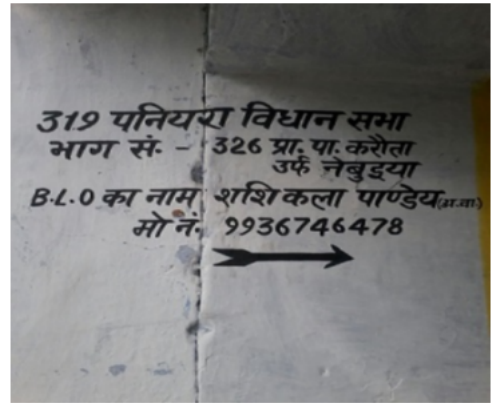 319 पनियरा विधान सभा
भाग सं. - 326 प्रा. पा. करौता
उर्फ नेबुइया
B.L.O का नाम शशि कला पाण्डेय
मो नं. 9936746478